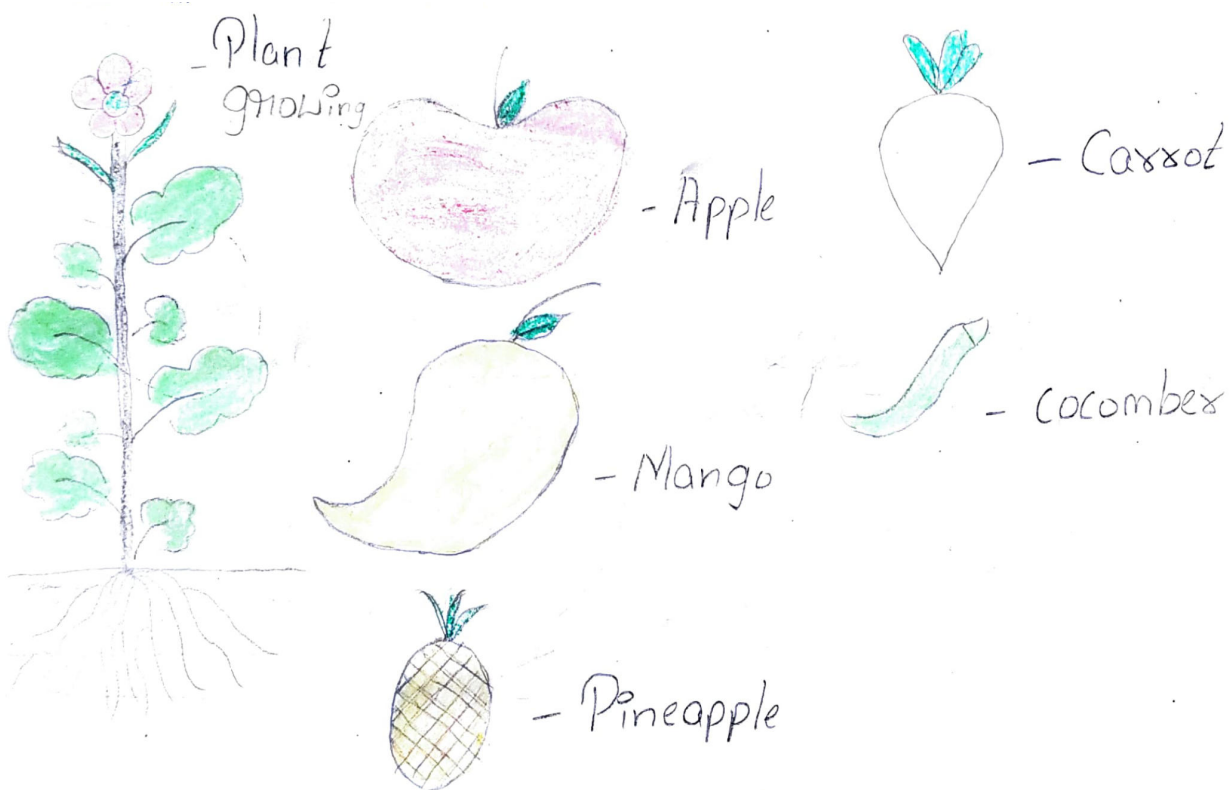 - Plant
growing
- Apple
- Mango
- Pineapple
- Carrot
- cocomber